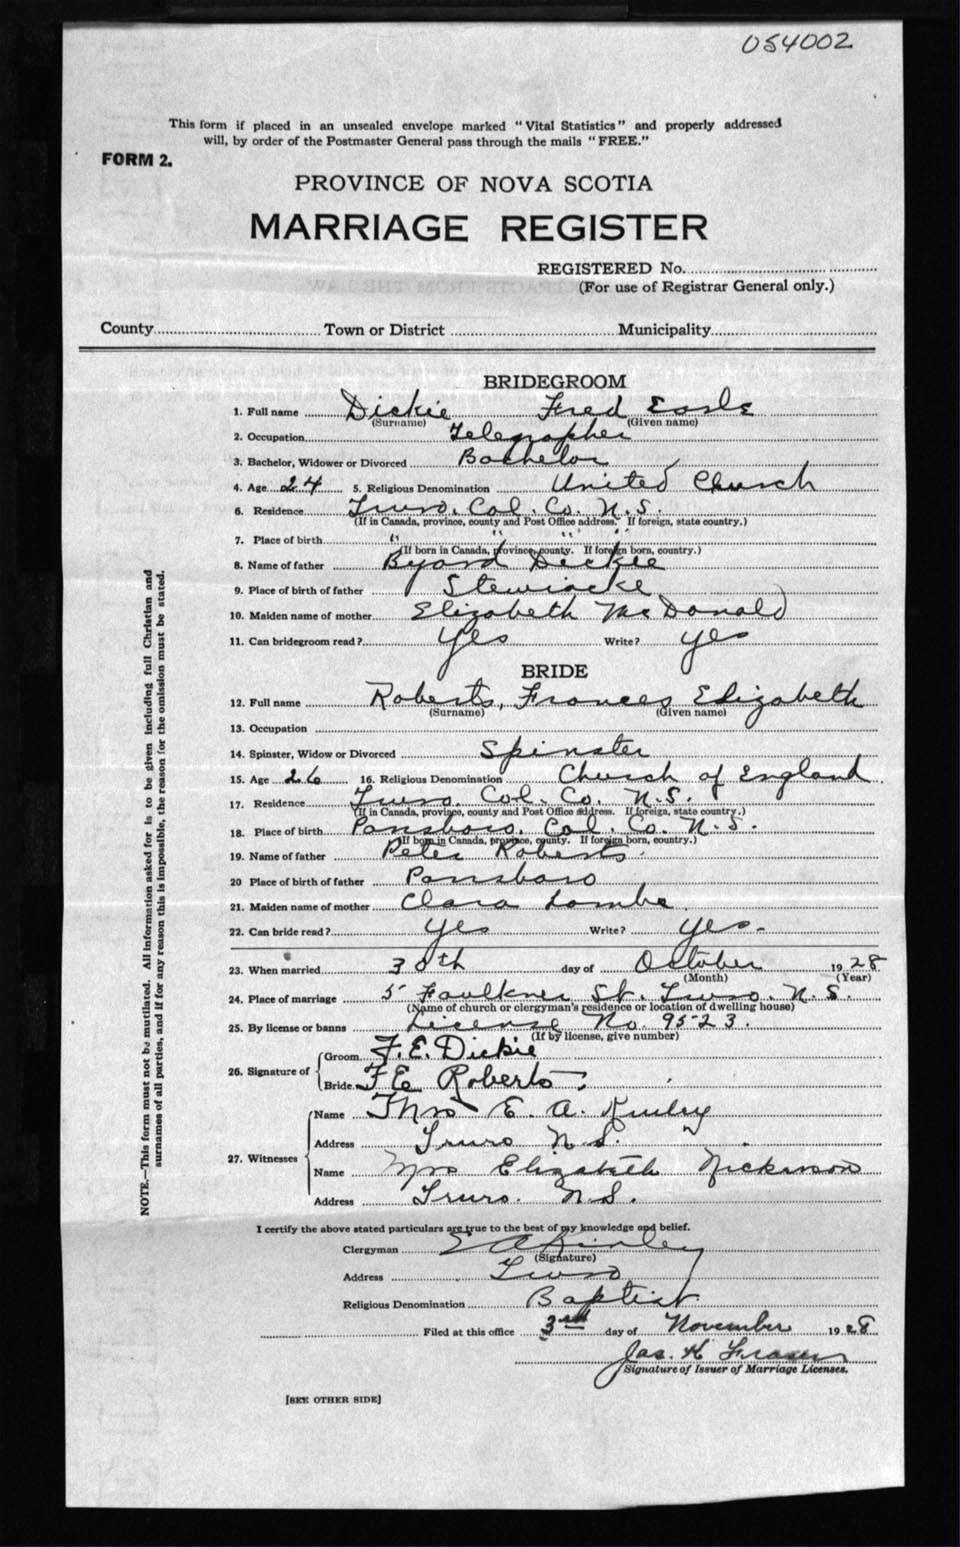 054002
This form if placed in an unsealed envelope marked "Vital Statistics" and properly addressed
will, by order of the Postmaster General pass through the mails "FREE."
FORM 2.
PROVINCE OF NOVA SCOTIA
MARRIAGE REGISTER
REGISTERED No.
(For use of Registrar General only.)
County Town or District Municipality
BRIDEGROOM
1. Full name Dickie Fred Earle
(Surname) (Given name)
2. Occupation Telegrapher
3. Bachelor, Widower or Divorced Bachelor
4. Age 24 5. Religious Denomination United Church
6. Residence Truro. Col. Co. N.S.
(If in Canada, province, county and Post Office address. If foreign, state country.)
7. Place of birth " " " "
(If born in Canada, province, county. If foreign born, country.)
8. Name of father Byard Dickie
9. Place of birth of father Stewiacke
10. Maiden name of mother Elizabeth McDonald
11. Can bridegroom read? Yes Write? Yes
BRIDE
12. Full name Roberts, Frances Elizabeth
(Surname) (Given name)
13. Occupation
14. Spinster, Widow or Divorced Spinster
15. Age 26 16. Religious Denomination Church of England
17. Residence Truro. Col. Co. N.S.
(If in Canada, province, county and Post Office address. If foreign, state country.)
18. Place of birth Parrsboro. Col. Co. N.S.
(If born in Canada, province, county. If foreign born, country.)
19. Name of father Peter Roberts.
20 Place of birth of father Parrsboro
21. Maiden name of mother Clara Lambe
22. Can bride read? Yes Write? Yes.
23. When married 30th day of October 1928
(Month) (Year)
24. Place of marriage 5 Faulkner St. Truro. N.S.
(Name of church or clergyman's residence or location of dwelling house)
25. By license or banns License No. 9523.
(If by license, give number)
26. Signature of Groom F.E. Dickie
Bride F E Roberts
27. Witnesses Name Mrs E. A. Kinley
Address Truro N.S.
Name Mrs Elizabeth Nickerson
Address Truro. N.S.
I certify the above stated particulars are true to the best of my knowledge and belief.
Clergyman E A Kinley
(Signature)
Address Truro
Religious Denomination Baptist
Filed at this office 3rd day of November 1928
Jas. K Fraser
Signature of Issuer of Marriage Licenses.
[SEE OTHER SIDE]
NOTE.—This form must not be mutilated. All information asked for is to be given including full Christian and
surnames of all parties, and if for any reason this is impossible, the reason for the omission must be stated.